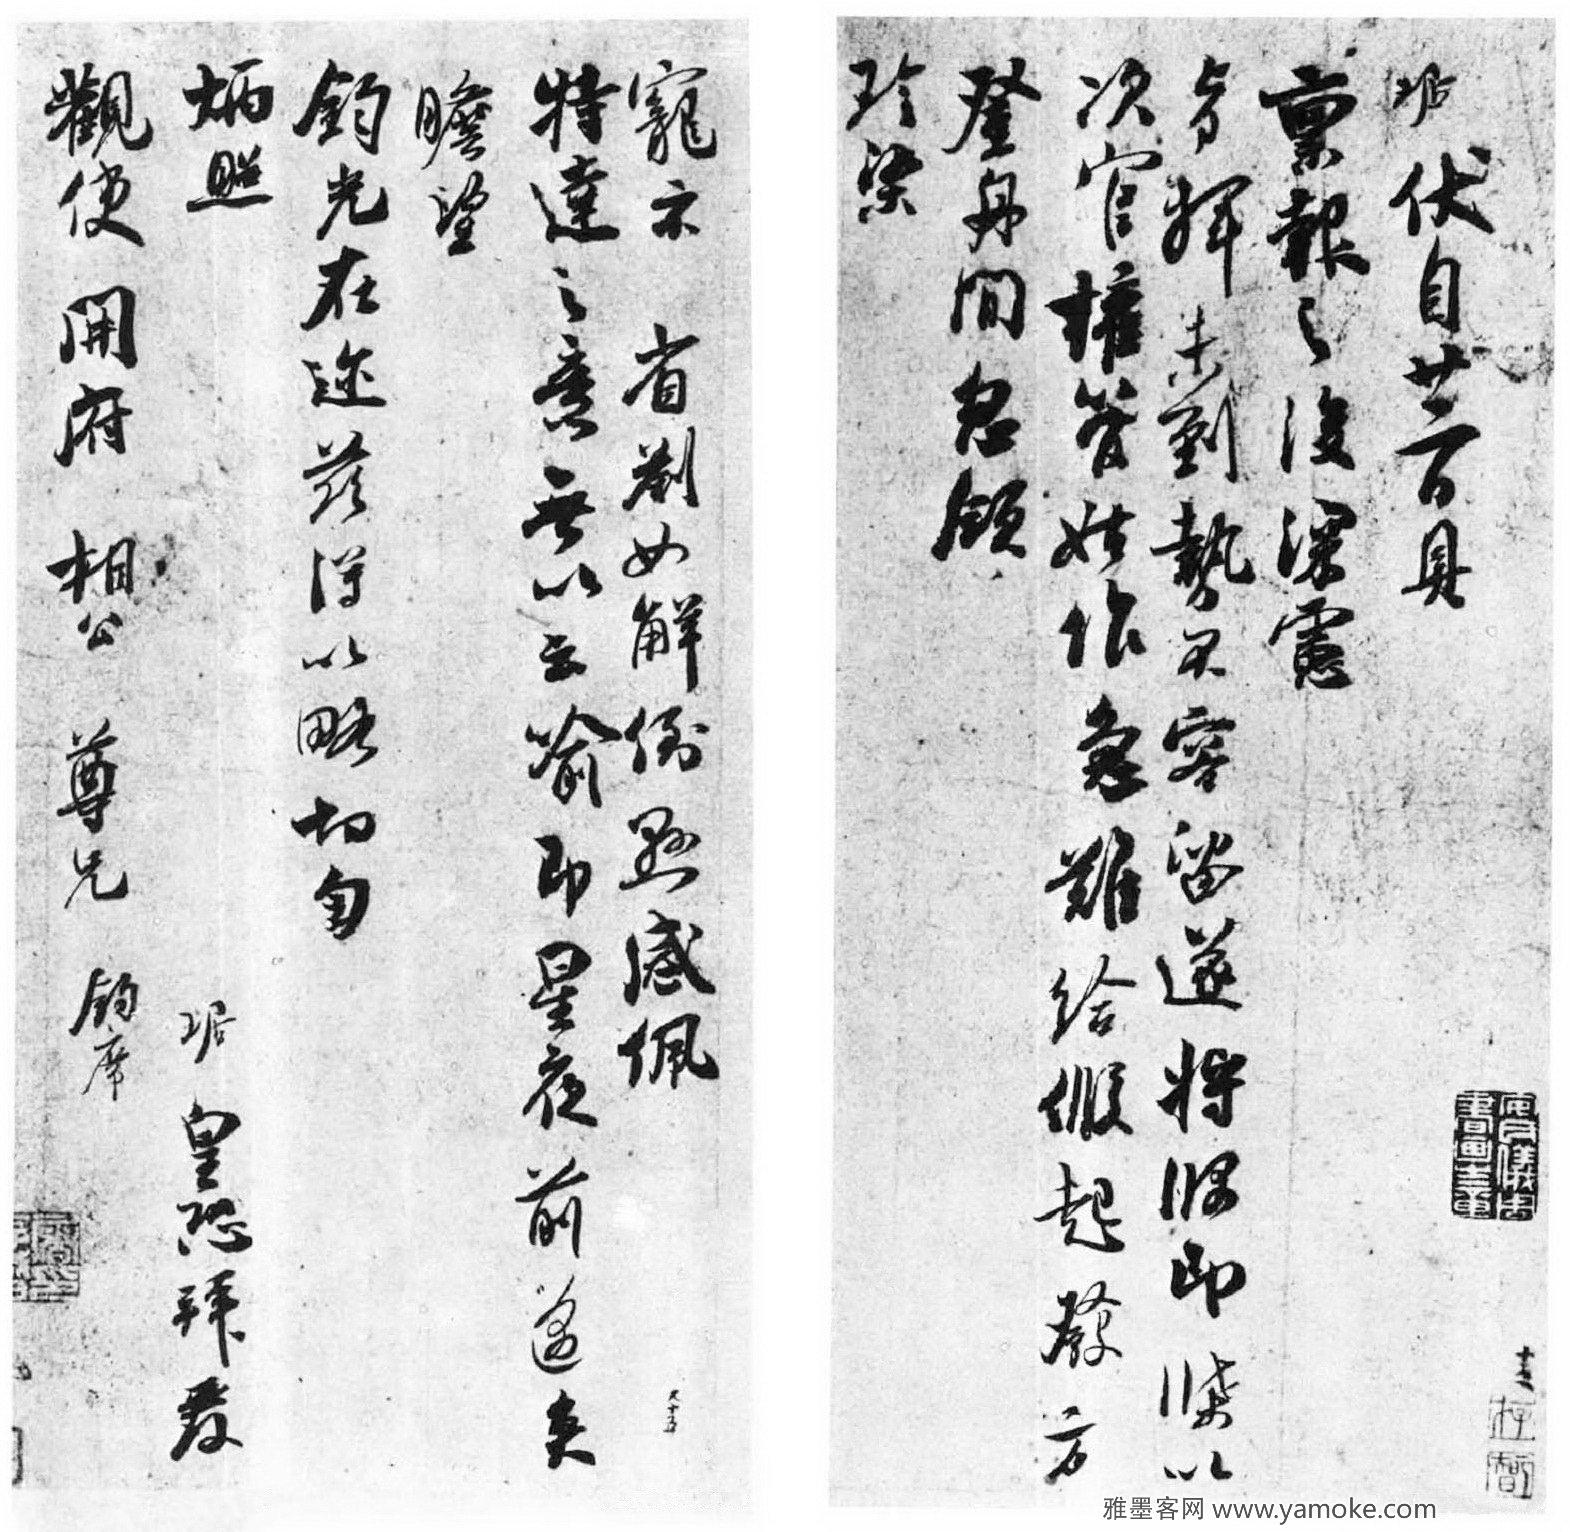 琚伏自廿二日具
稟報之後深慮
台揮未到勢不容留遂將牌印牒以
次官權管始作急難給假起發方
登舟間忽領
珍染
寵示 省劄如解倒懸感佩
特達之意無以云喻即星夜前邁矣
瞻望
鈞光在邇茲得以略切匄
炳照
琚皇恐拜覆
觀使 開府 相公 尊兄 鈞席
雅墨客网 www.yamoke.com